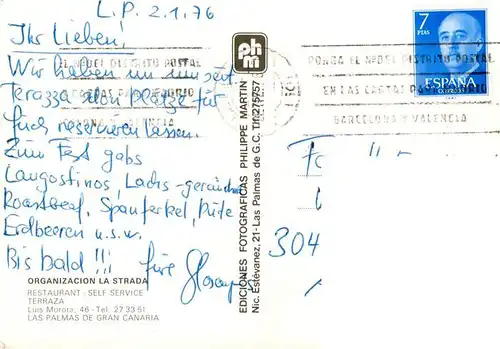 L.P. 2.1.76
Ihr Lieben,
Wir haben
Terazza schon Plätze für
Euch reservieren lassen.
Zum Fest gabs
Langostinos, Lachs-geräuchert
Roastbeaf, Spanferkel, Pute
Erdbeeren u.s.w.
Bis bald !!! Eure
ORGANIZACION LA STRADA
RESTAURANT - SELF SERVICE
TERRAZA
Luis Morora, 46 - Tel. 27 33 51
LAS PALMAS DE GRAN CANARIA
phm
EDICIONES FOTOGRAFICAS PHILIPPE MARTIN
Nic. Estévanez, 21 - Las Palmas de G.C. Tfn275757
7
PTAS
ESPAÑA
CORREOS
PONGA EL Nº DEL DISTRITO POSTAL
EN LAS CARTAS PARA MADRID
BARCELONA Y VALENCIA
304